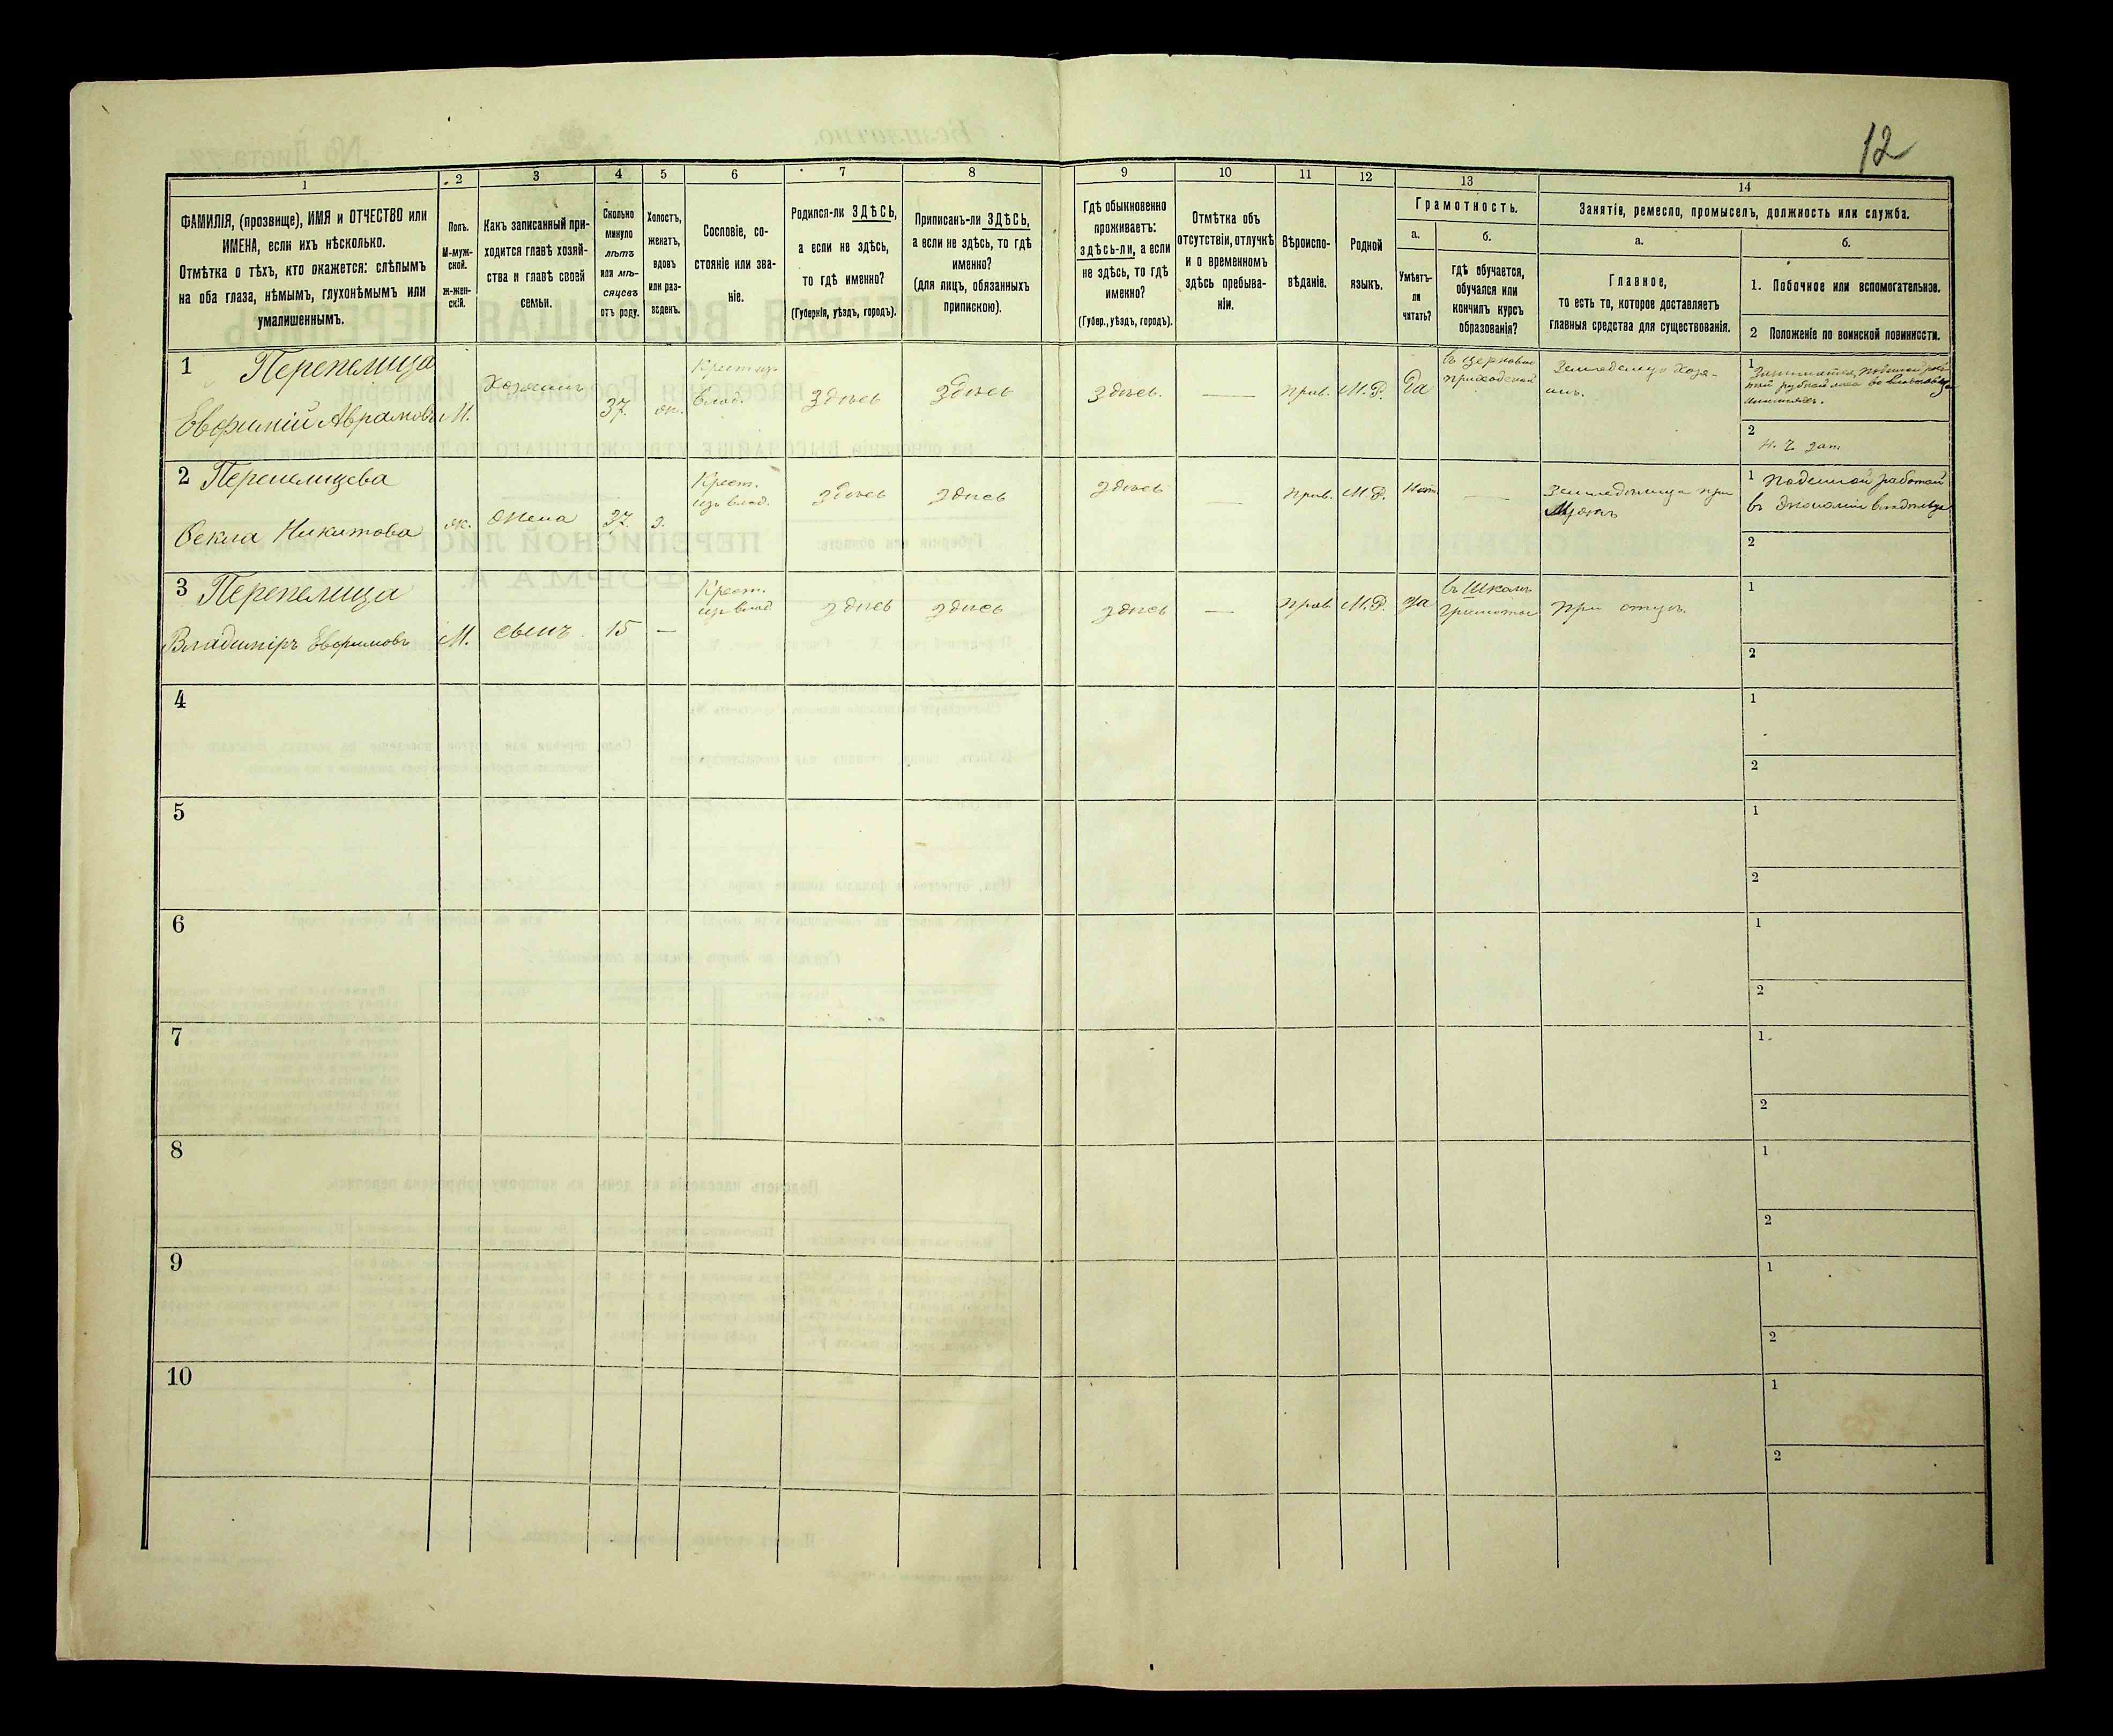 12
1
2
3
4
5
6
7
8
9
10
11
12
13
14
ФАМИЛІЯ, (прозвище), ИМЯ и ОТЧЕСТВО или
ИМЕНА, если ихъ нѣсколько.
Отмѣтка о тѣхъ, кто окажется: слѣпымъ
на оба глаза, нѣмымъ, глухонѣмымъ или
умалишеннымъ.
Полъ.
М-муж-
ской.
ж-жен-
скій.
Какъ записанный при-
ходится главѣ хозяй-
ства и главѣ своей
семьи.
Сколько
минуло
лѣтъ
или мѣ-
сяцевъ
отъ роду.
Холостъ,
женатъ,
вдовъ
или раз-
веденъ.
Сословіе, со-
стояніе или зва-
ніе.
Родился-ли ЗДѢСЬ,
а если не здѣсь,
то гдѣ именно?
(Губернія, уѣздъ, городъ).
Приписанъ-ли ЗДѢСЬ,
а если не здѣсь, то гдѣ
именно?
(для лицъ, обязанныхъ
припискою).
Гдѣ обыкновенно
проживаетъ:
здѣсь-ли, а если
не здѣсь, то гдѣ
именно?
(Губер., уѣздъ, городъ).
Отмѣтка объ
отсутствіи, отлучкѣ
и о временномъ
здѣсь пребыва-
ніи.
Вѣроиспо-
вѣданіе.
Родной
языкъ.
Грамотность.
а.
Умѣетъ-
ли
читать?
б.
гдѣ обучается,
обучался или
кончилъ курсъ
образованія?
Занятіе, ремесло, промыселъ, должность или служба.
а.
Главное,
то есть то, которое доставляетъ
главныя средства для существованія.
б.
1. Побочное или вспомогательное.
2 Положеніе по воинской повинности.
1 Перепелица
Евфимій Аврамовъ
М.
Хозяинъ
37
ж.
Крест. изъ
влад.
здѣсь
здѣсь
здѣсь.
—
прав.
М.Р.
да
въ церковно
приходской
Земледелецъ хозя-
инъ.
1
2
2 Перепелицева
Ѳекла Никитова
ж.
жена
37.
з.
Крест.
изъ влад.
здѣсь
здѣсь
здѣсь
—
прав.
М.Р.
Нѣт
—
Земледѣлица при
мужѣ
1 поденной работой
въ экономіи владѣльца
2
3 Перепелица
Владиміръ Евфимовъ
М.
сынъ
15
—
Крест.
изъ влад
здѣсь
здѣсь
здѣсь
—
прав
М.Р.
да
въ Школѣ
грамоты
при отцѣ.
1
2
4
1
2
5
1
2
6
1
2
7
1
2
8
1
2
9
1
2
10
1
2